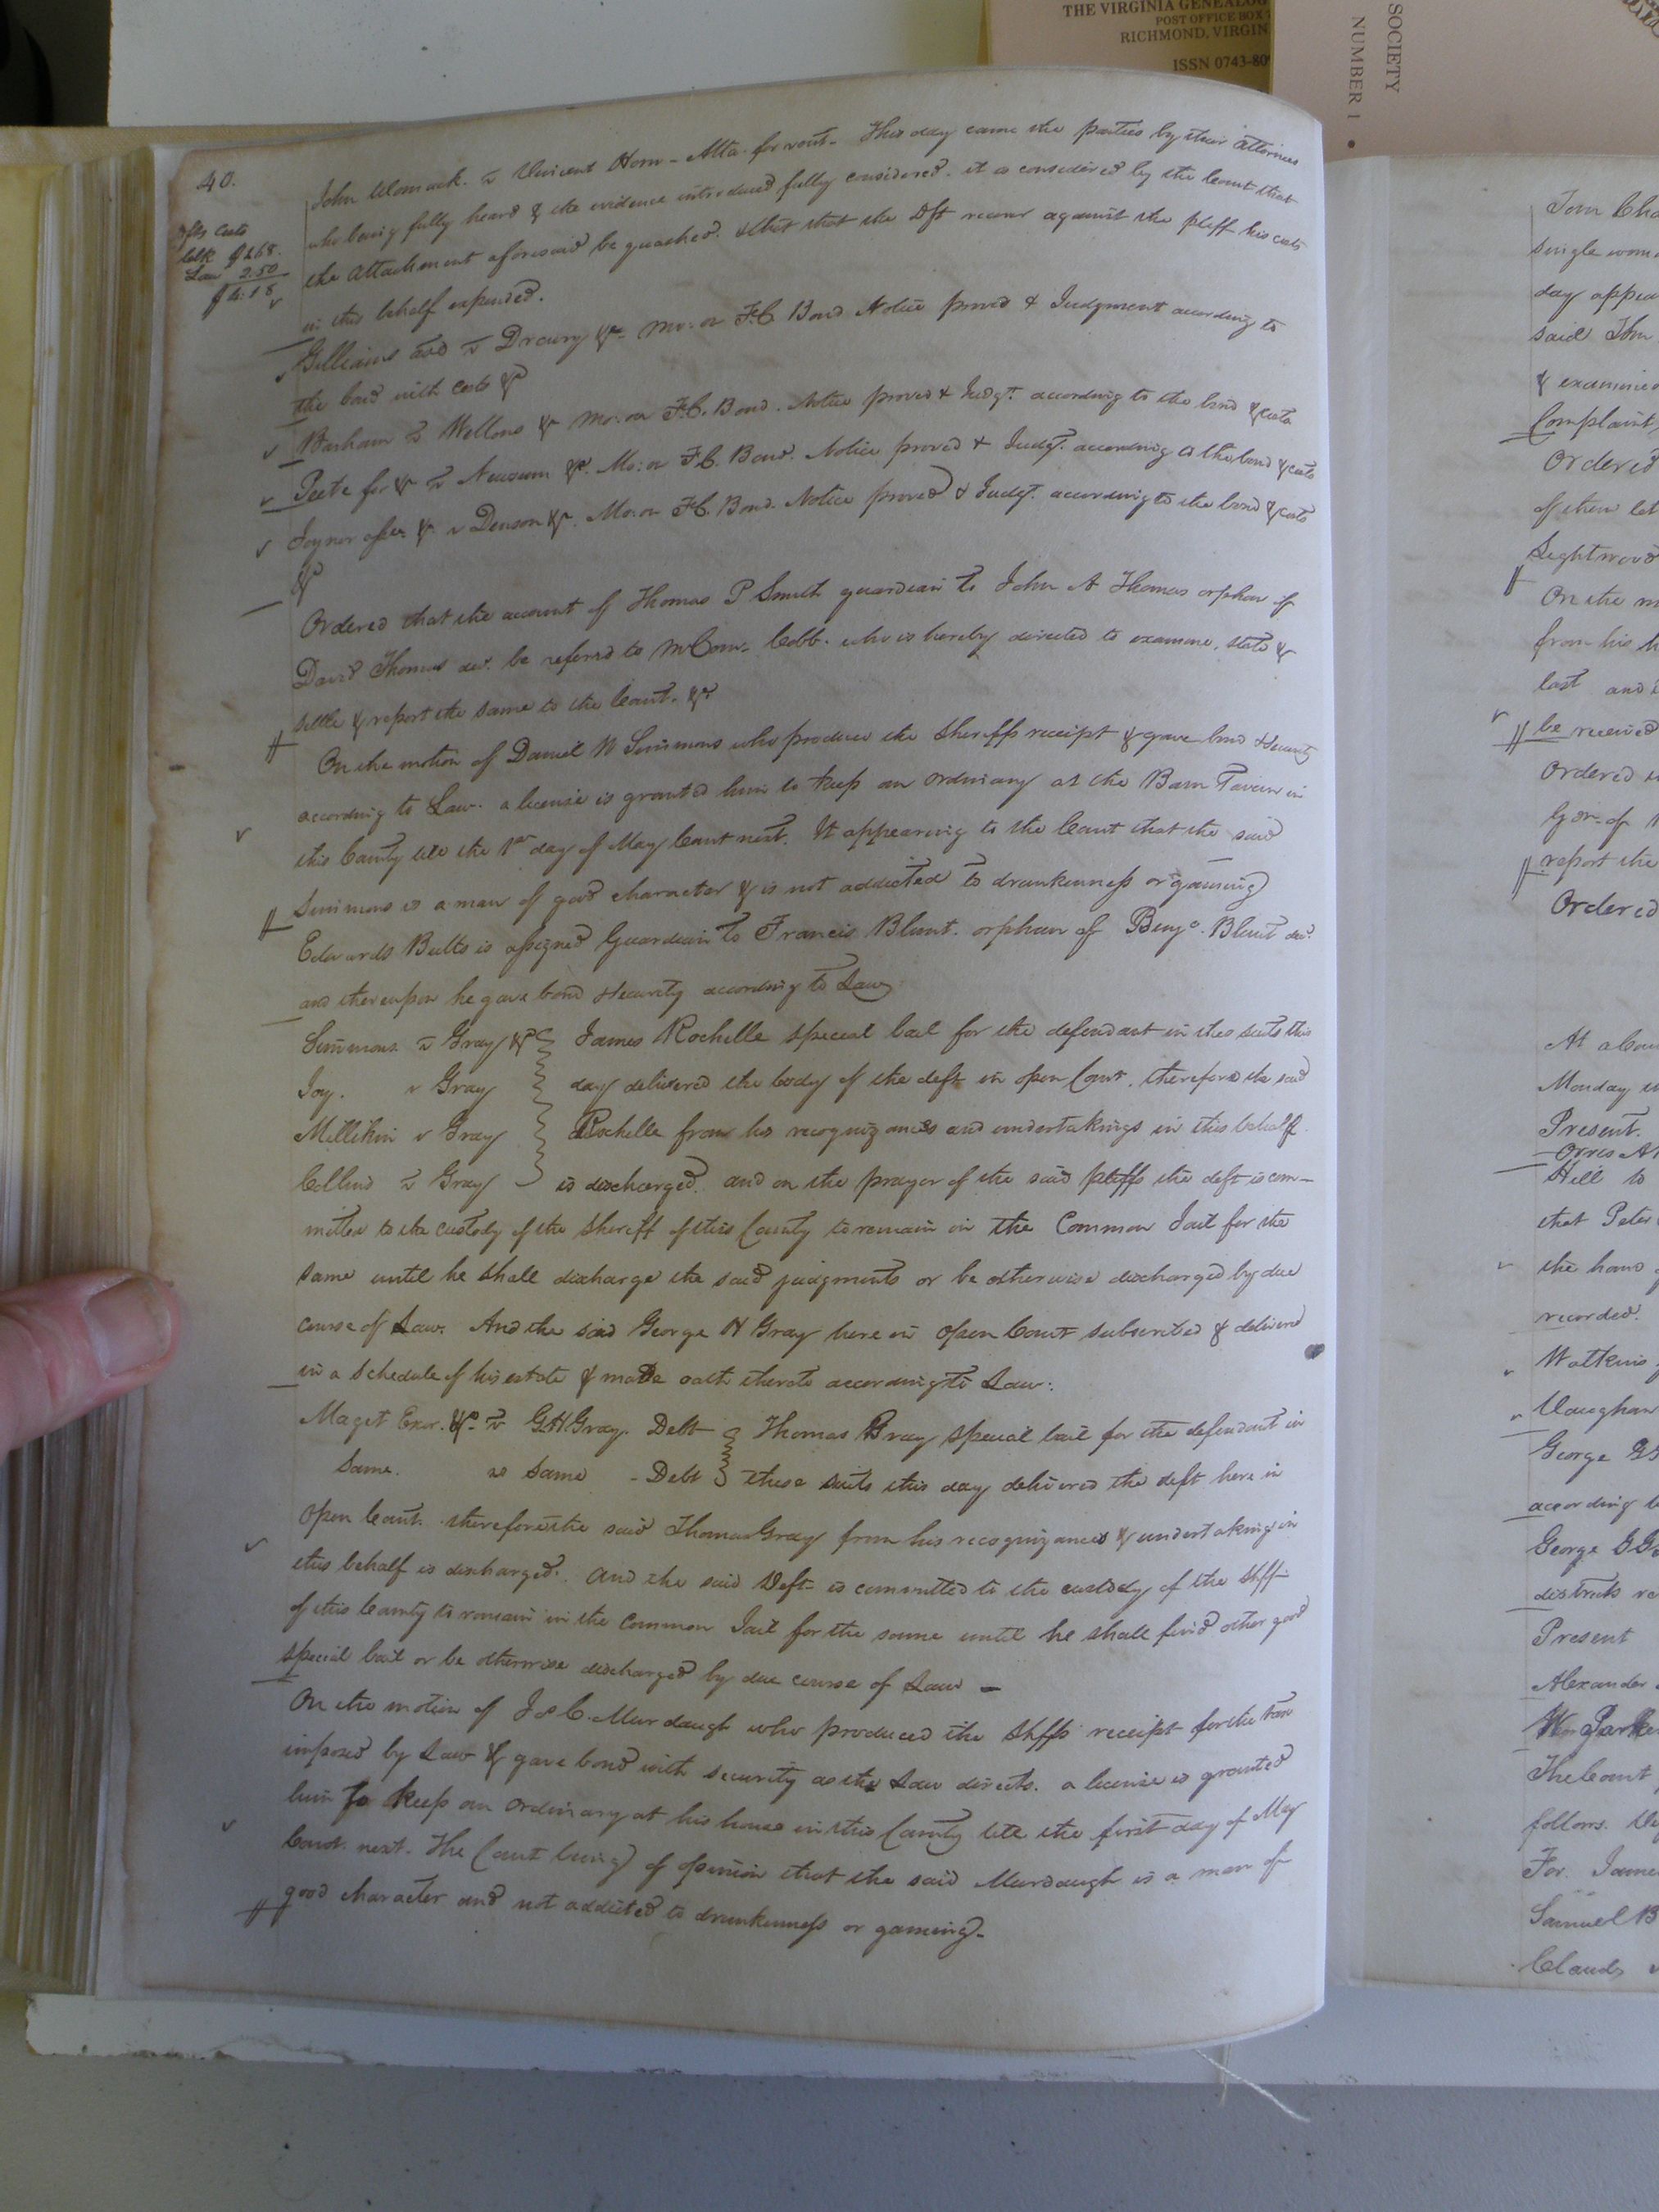 THE VIRGINIA GENEALOG
POST OFFICE BOX 7
RICHMOND, VIRGIN
ISSN 0743-809
SOCIETY
NUMBER 1 •
40.
Dfts Costs
Clk $1.68.
Law 2.50
$4:18
John Womack. vs Vincent Horn - Atta. for rent - This day came the parties by their attornies
who being fully heard & the evidence introduced fully considered. it is considered by the Court that
the attachment aforesaid be quashed. & that the Dft recover against the pltff his costs
in this behalf expended.
Gilliams vs Drewry &c - Mo: on F.C. Bond Notice proved & Judgment according to
the bond with costs &c
Barham vs Wellons &c Mo: on F.C. Bond. Notice proved & Judgt. according to the bond & costs
Peete for &c vs Newsum &c. Mo: on F.C. Bond. Notice proved & Judgt. according to the bond & costs
Joyner assee. &c. v Denson &c. Mo: on F.C. Bond. Notice proved & Judgt. according to the bond & costs
&c
Ordered that the account of Thomas P Smith guardian to John A Thomas orphan of
David Thomas decd. be referred to Mr Comr. Cobb. who is hereby directed to examine, state &
settle & report the same to the Court. &c
On the motion of Daniel W Simmons who produced the Sheriffs receipt & gave bond & security
according to Law. a license is granted him to keep an ordinary at the Barn Tavern in
this County till the 1st day of May Court next. It appearing to the Court that the said
Simmons is a man of good character & is not addicted to drunkenness or gaming
Edwards Butts is assigned Guardian to Francis Blunt. orphan of Benja. Blunt decd.
and thereupon he gave bond & security according to Law
Simmons vs Gray &c James Rochelle special bail for the defendant in these suits this
Joy. v Gray day delivered the body of the deft in open Court, therefore the said
Millikin v Gray Rochelle from his recognizances and undertakings in this behalf
Collins vs Gray is discharged. and on the prayer of the said pltffs the deft is com-
mitted to the custody of the Sheriff of this County to remain in the Common Jail for the
same until he shall discharge the said judgments or be otherwise discharged by due
course of Law. And the said George H Gray here in open Court subscribed & delivered
in a schedule of his estate & made oath thereto according to Law:
Maget Exor. &c. vs G.H Gray. Debt Thomas Gray special bail for the defendant in
Same. vs Same - Debt these suits this day delivered the deft here in
open Court. therefore the said Thomas Gray from his recognizances & undertaking in
this behalf is discharged. and the said Deft is committed to the custody of the Shff
of this County to remain in the Common Jail for the same until he shall find other good
special bail or be otherwise discharged by due course of Law -
On the motion of J & C. Murdaugh who produced the Shffs receipt for the tax
imposed by Law & gave bond with security as the Law directs. a license is granted
him to keep an ordinary at his house in this County till the first day of May
Court. next. The Court being of opinion that the said Murdaugh is a man of
good character and not addicted to drunkenness or gaming -
single wom
day appea
said John
& examined
Complaint,
Ordered
of them let
On the m
from his
last and
be received
Ordered
report the
Ordered
At a Cou
Monday
Present.
Hill to
that Peter
the hand
recorded.
Watkins
Vaughan
George
according
George
districts
Present
Alexander
Wm Parker
The Court
follows.
For. James
Samuel B
Claud